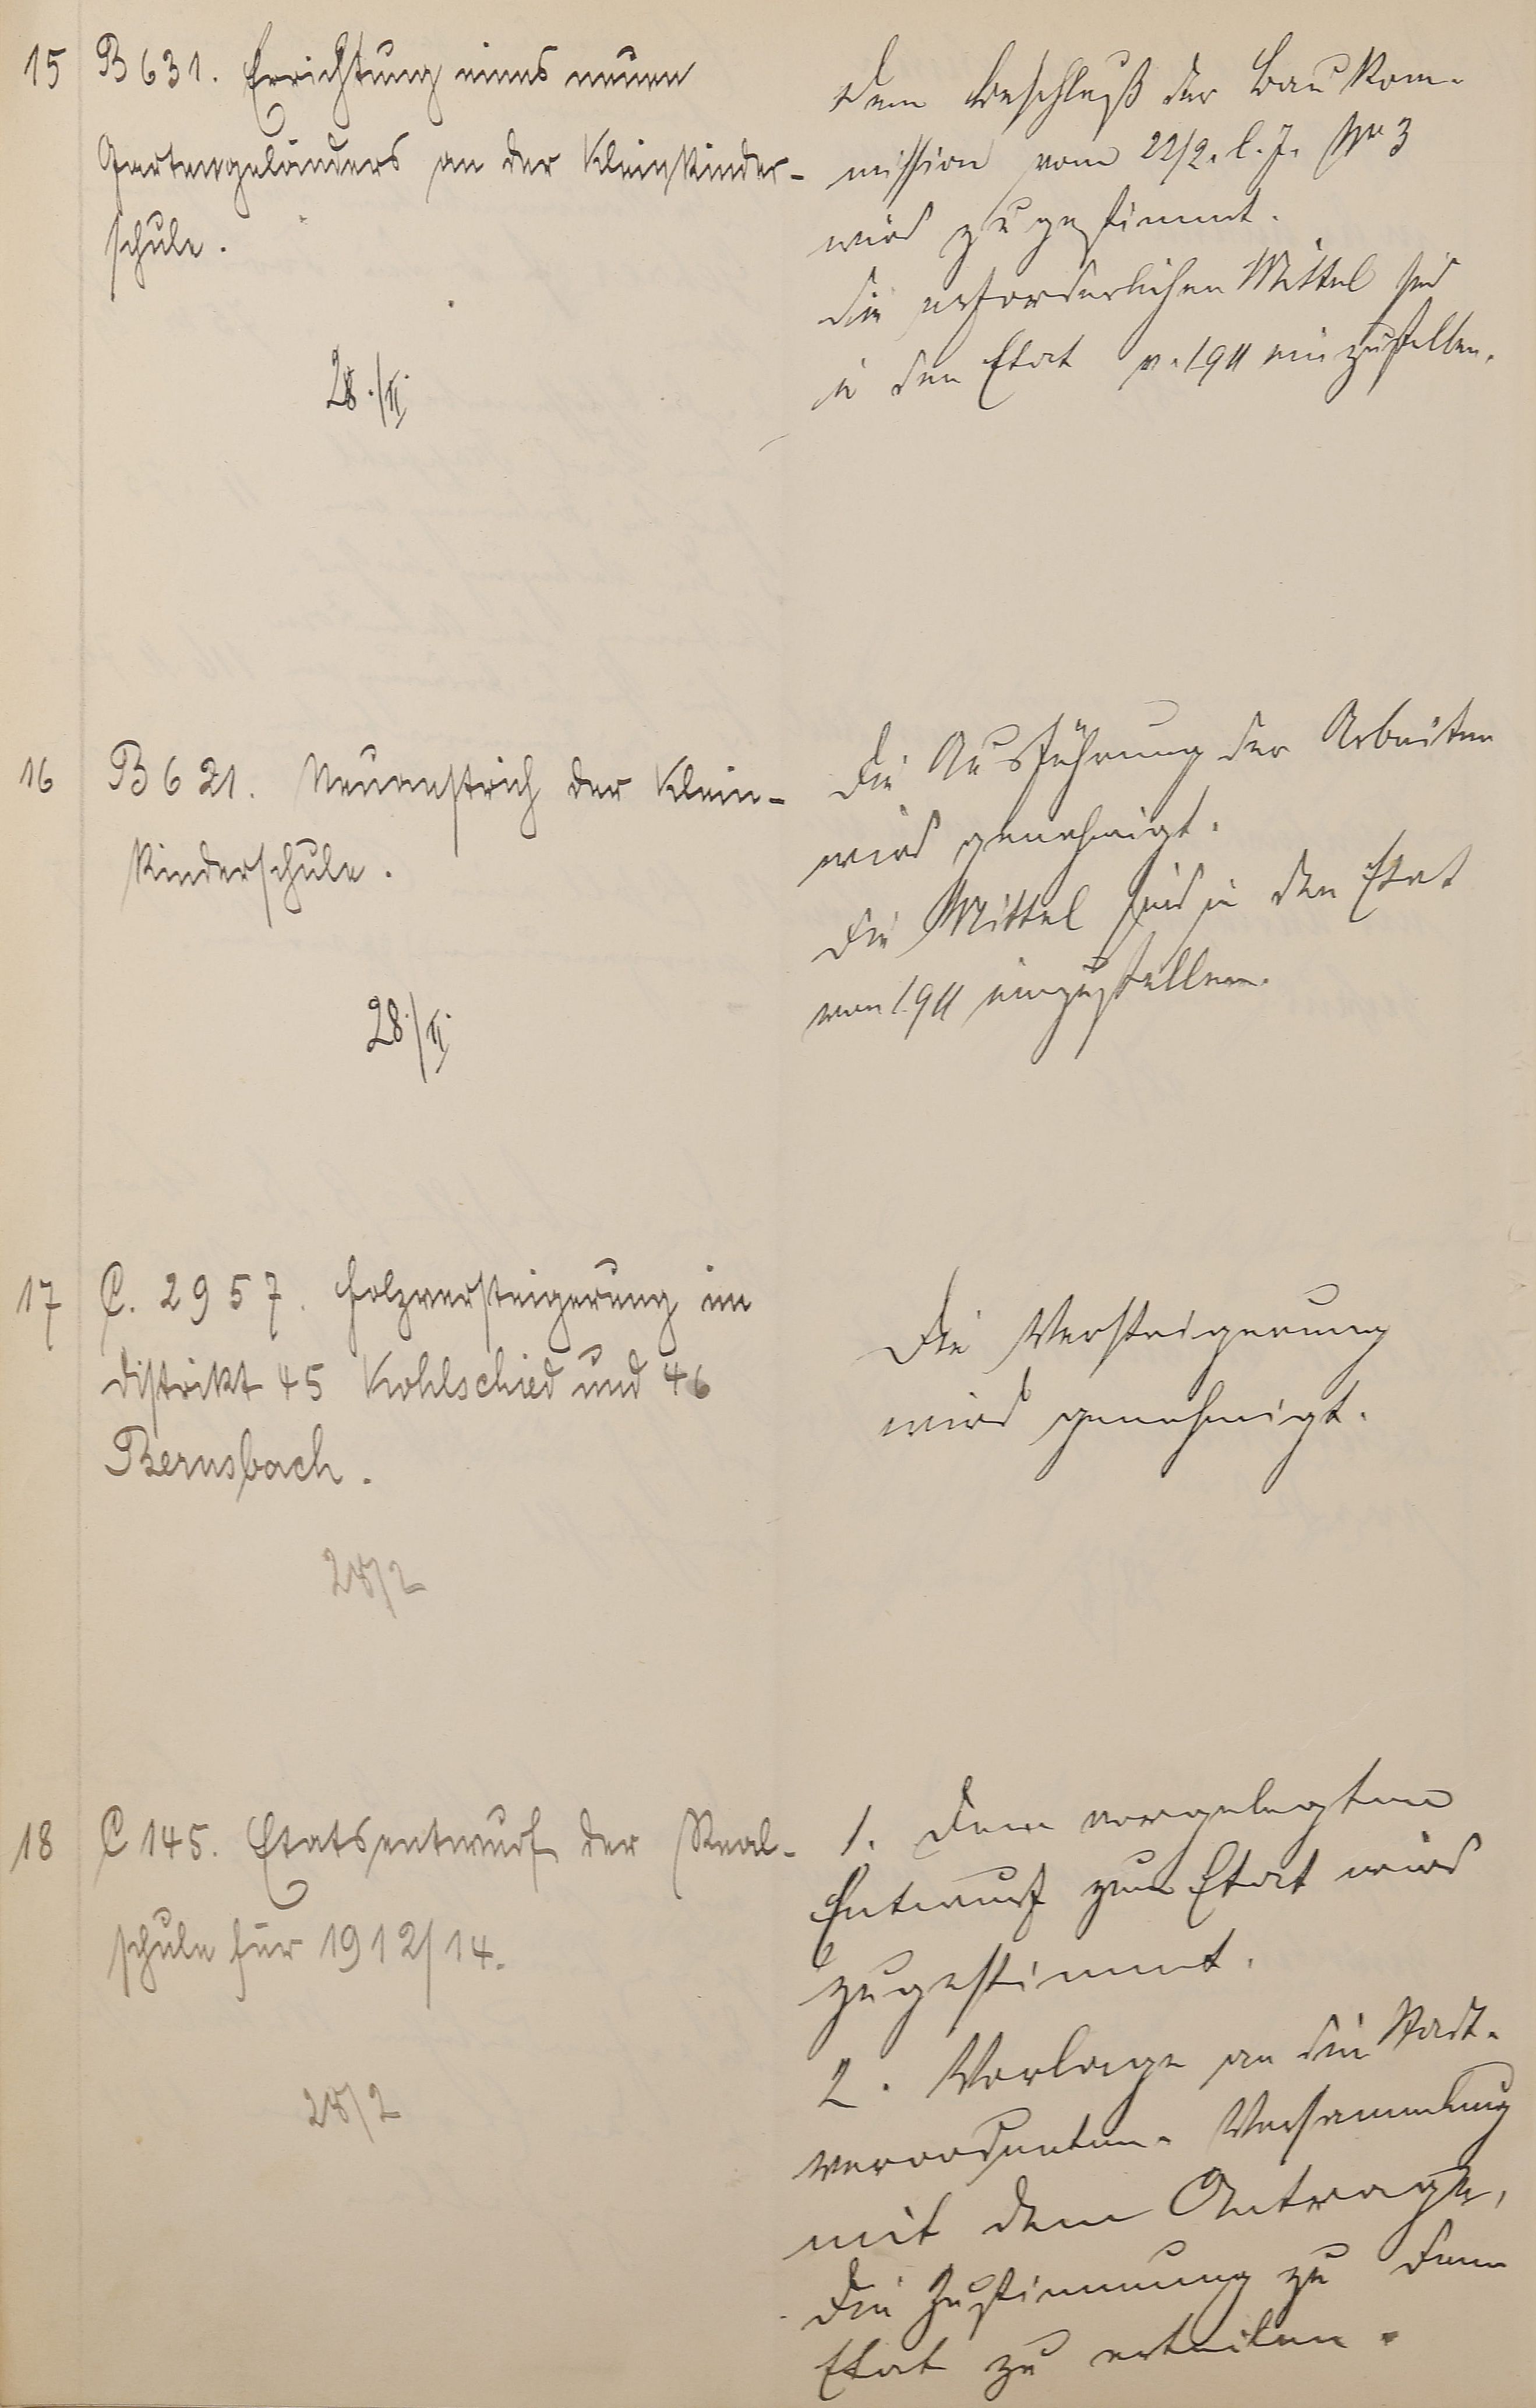 15 B 631. Errichtung eines neuen
Gartengeländers an der Kleinkinder-
schule.
28./II.
Dem Beschluß der Baukom-
mission vom 22/2. l. J. No 3
wird zugestimmt.
Die erforderlichen Mittel sind
in den Etat v. 1911 einzustellen.
16 B 621. Neuanstrich der Klein-
kinderschule.
28./II.
Die Ausführung der Arbeiten
wird genehmigt.
Die Mittel sind in den Etat
von 1911 einzustellen.
17 C. 2957. Holzversteigerung im
Distrikt 45 Kohlschied und 46
Bernsbach.
28/2
Die Versteigerung
wird genehmigt.
18 C 145. Etatsentwurf der Real-
schule für 1912/14.
28/2
1. Dem vorgelegten
Entwurf zum Etat wird
zugestimmt.
2. Vorlage an die Stadt-
verordneten-Versammlung
mit dem Antrage,
die Zustimmung zu dem
Etat zu erteilen.